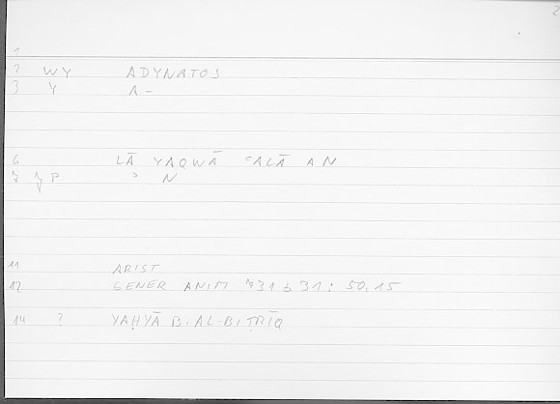 2
1
2 WY ADYNATOS
3 Y A-
6 LĀ YAQWĀ ʿALĀ AN
7 P ʾ N
11 ARIST
12 GENER ANIM 731 b 31: 50,15
14 ? YAḤYĀ B. AL-BIṬRĪQ